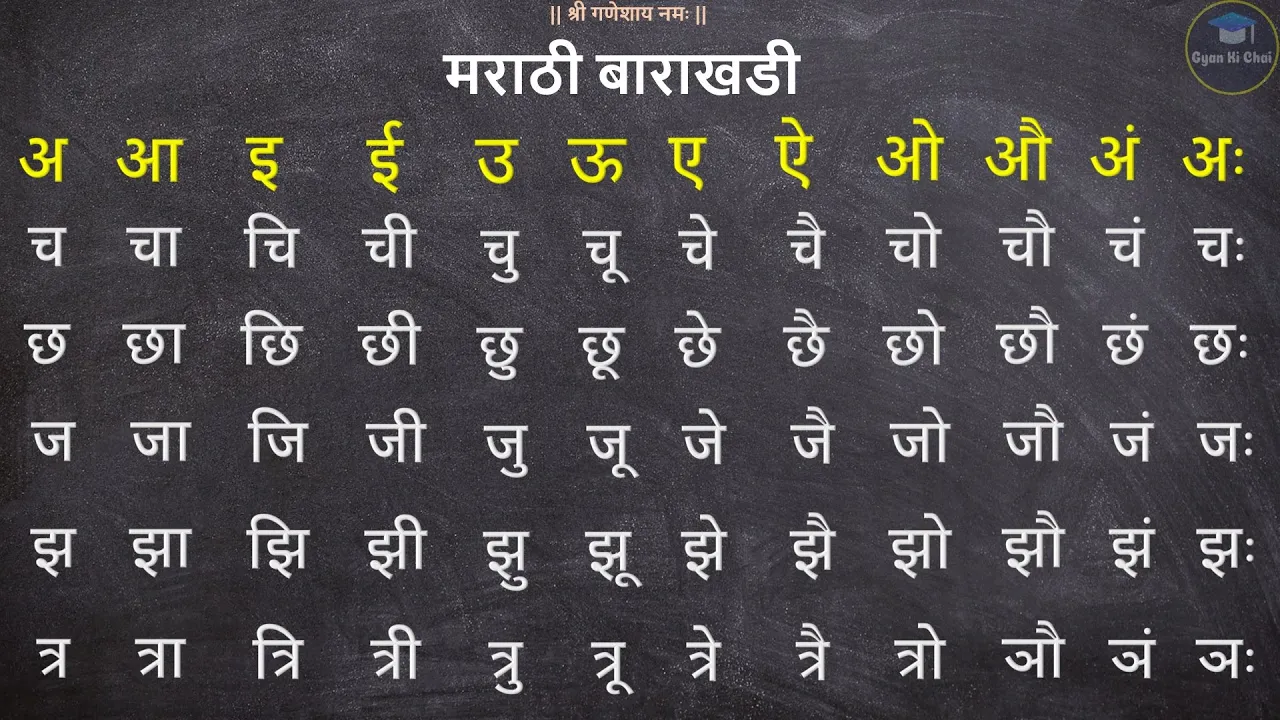 || श्री गणेशाय नमः ||
Gyan Ki Chai
मराठी बाराखडी
अ आ इ ई उ ऊ ए ऐ ओ औ अं अः
च चा चि ची चु चू चे चै चो चौ चं चः
छ छा छि छी छु छू छे छै छो छौ छं छः
ज जा जि जी जु जू जे जै जो जौ जं जः
झ झा झि झी झु झू झे झै झो झौ झं झः
त्र त्रा त्रि त्री त्रु त्रू त्रे त्रै त्रो ञौ ञं ञः